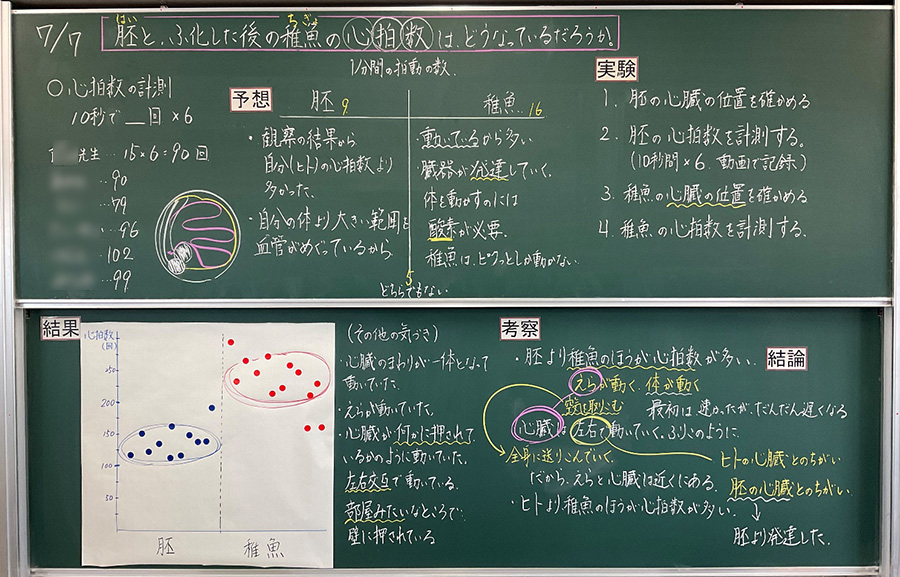 7/7
はい ちぎょ
胚と、ふ化した後の稚魚の心拍数は、どうなっているだろうか!
1分間の拍動の数
○心拍数の計測
10秒で__回×6
先生…15×6=90回
…90
…79
…96
・102
…99
予想
胚 9
・観察の結果から
自分(ヒト)の心拍数より
多かった。
・自分の体より大きい範囲を
血管がめぐっているから
稚魚 16
・動いているから多い
・臓器が発達していく。
体を動かすのには
酸素が必要。
稚魚は、ピクッとしか動かない。
5
どちらでもない
実験
1. 胚の心臓の位置を確かめる
2. 胚の心拍数を計測する。
(10秒間×6 動画で記録)
3. 稚魚の心臓の位置を確かめる
4. 稚魚の心拍数を計測する.
結果
心拍数
(回)
250
200
150
100
50
胚
稚魚
(その他の気づき)
・心臓のまわりが一体となって
動いていた。
・えらが動いていた。
・心臓が何かに押されて
いるかのように動いていた。
左右交互で動いている.
部屋みたいなところで
壁に押されている
考察
・胚より稚魚のほうが心拍数が多い.
えらが動く、体が動く
酸素を取りこむ
最初は速かったが、だんだん遅くなる
心臓は左右で動いていく。ふりこのように
全身に送りこんでいく。
だから、えらと心臓は近くにある.
・ヒトより稚魚のほうが心拍数が多い.
結論
ヒトの心臓とのちがい
胚の心臓とのちがい
↓
胚より発達した.